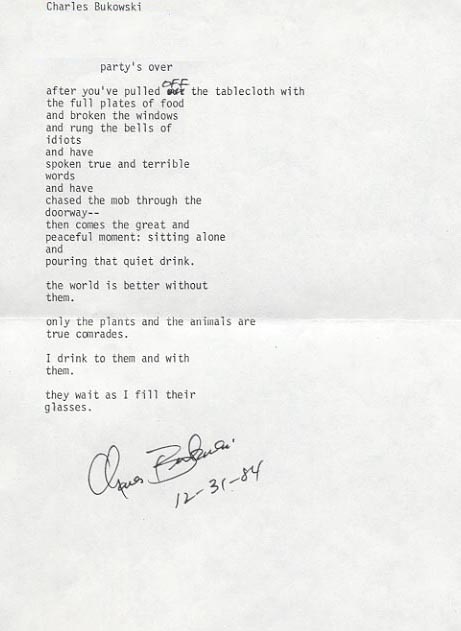 Charles Bukowski
party's over
after you've pulled OFF the tablecloth with
the full plates of food
and broken the windows
and rung the bells of
idiots
and have
spoken true and terrible
words
and have
chased the mob through the
doorway--
then comes the great and
peaceful moment: sitting alone
and
pouring that quiet drink.
the world is better without
them.
only the plants and the animals are
true comrades.
I drink to them and with
them.
they wait as I fill their
glasses.
Charles Bukowski
12-31-84